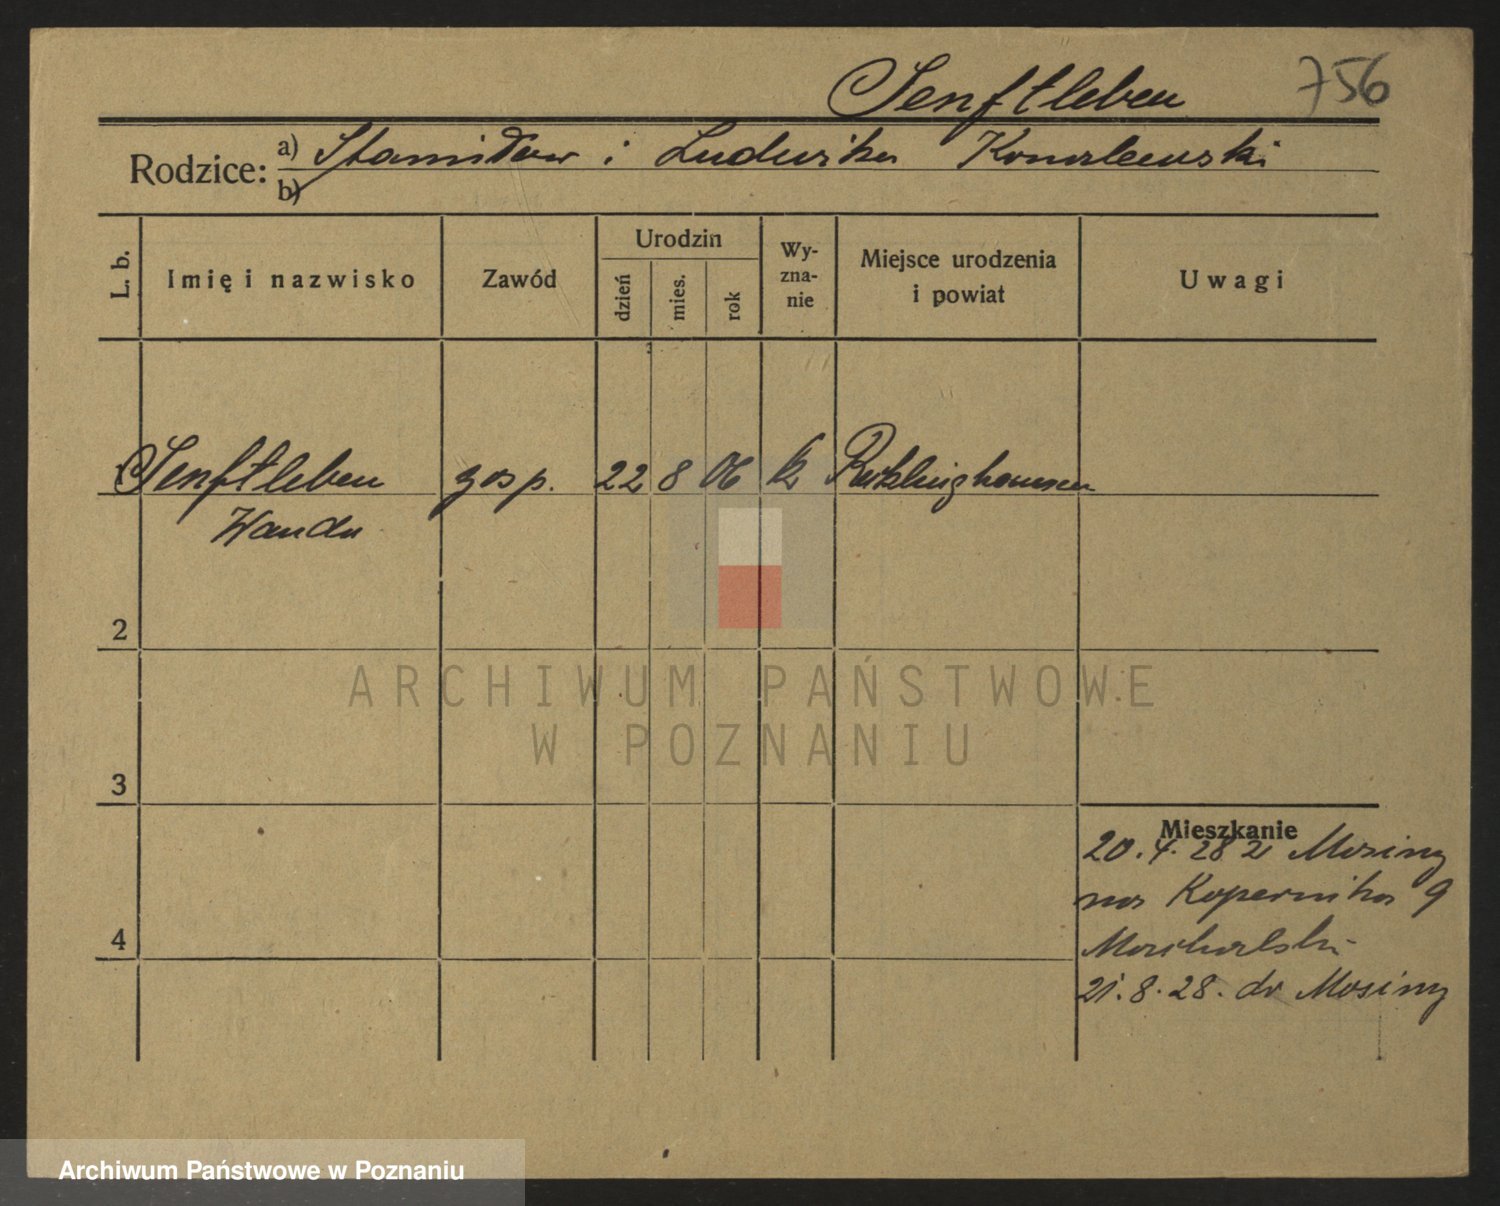 Senftleben 756
Rodzice: a) Stanisław i Ludwika Kowalewski
b)
L. b. Imię i nazwisko Zawód Urodzin dzień mies. rok Wyznanie Miejsce urodzenia i powiat Uwagi
Senftleben gosp. 22 8 06 k Recklinghausen
Wanda
2
3
4
Mieszkanie
20.4.28 z Mosiny
na Kopernika 9
21.8.28. do Mosiny
ARCHIWUM PAŃSTWOWE
W POZNANIU
Archiwum Państwowe w Poznaniu